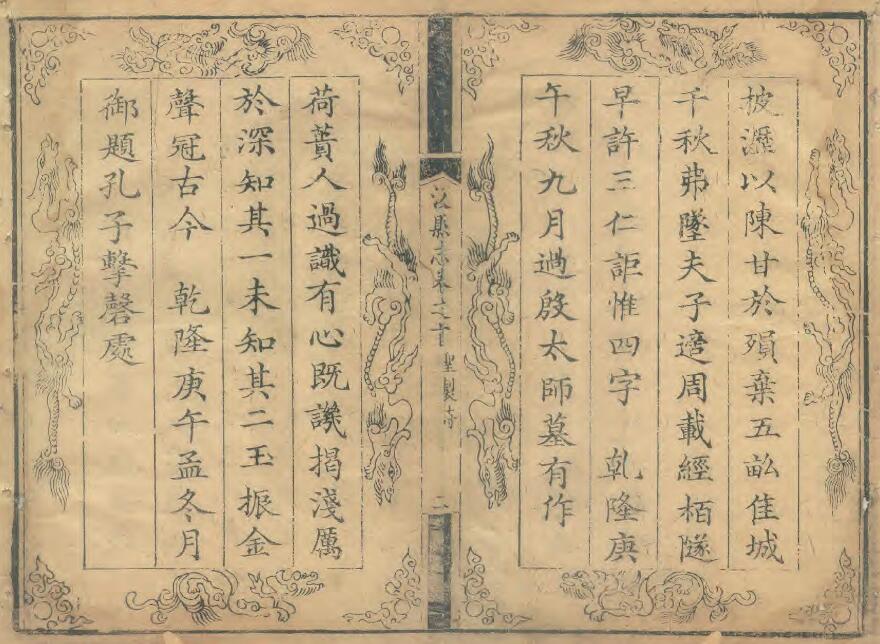 披瀝以陳甘於殞棄五畝佳城
千秋弗墜夫子適周載經栢隧
早許三仁詎惟四字　乾隆庚
午秋九月過殷太師墓有作
汲縣志卷之首　聖製詩　二
荷蕢人過識有心既譏揭淺厲
於深知其一未知其二玉振金
聲冠古今　乾隆庚午孟冬月
御題孔子擊磬處